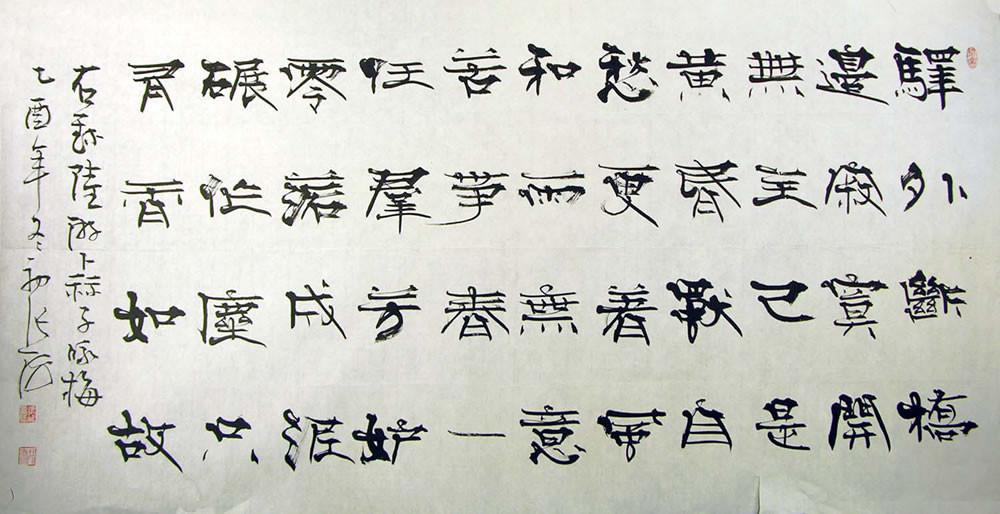 驛外斷橋
邊寂寞開
無主已是
黃昏獨自
愁更著風
和雨無意
苦爭春一
任羣芳妒
零落成泥
碾作塵只
有香如故
右録陸游卜祘子咏梅
乙酉年冬初